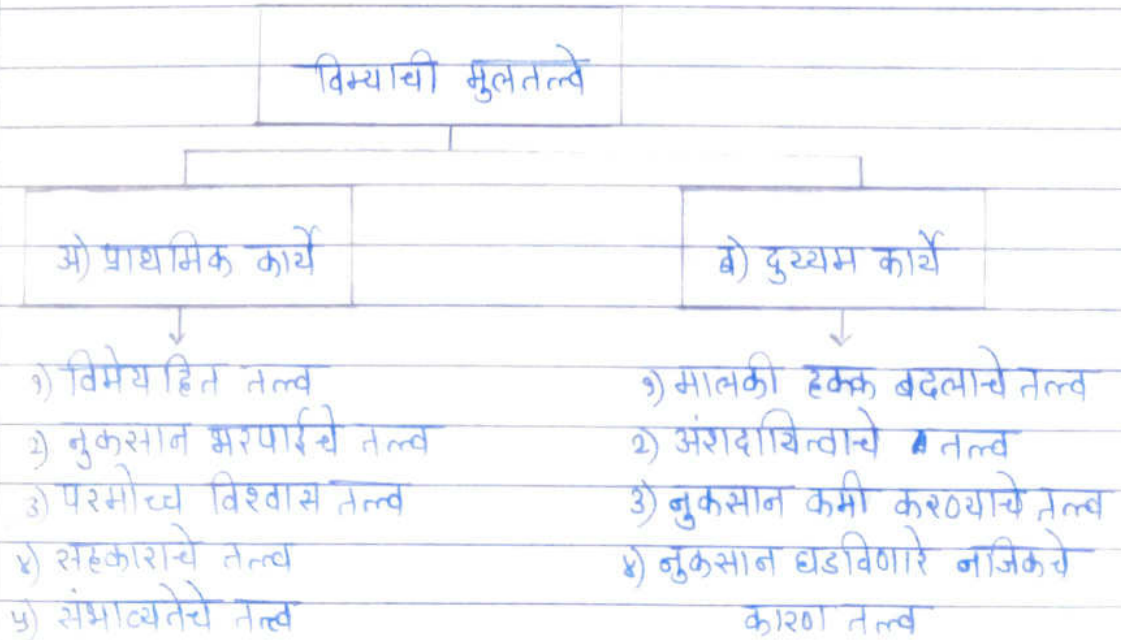 विम्याची मुलतत्वे
अ) प्राथमिक कार्ये
ब) दुय्यम कार्ये
१) विमेय हित तत्व
२) नुकसान भरपाईचे तत्व
३) परमोच्च विश्वास तत्व
४) सहकाराचे तत्व
५) संभाव्यतेचे तत्व
१) मालकी हक्क बदलाचे तत्व
२) अंशदायित्वाचे तत्व
३) नुकसान कमी करण्याचे तत्व
४) नुकसान घडविणारे नजिकचे
कारण तत्व